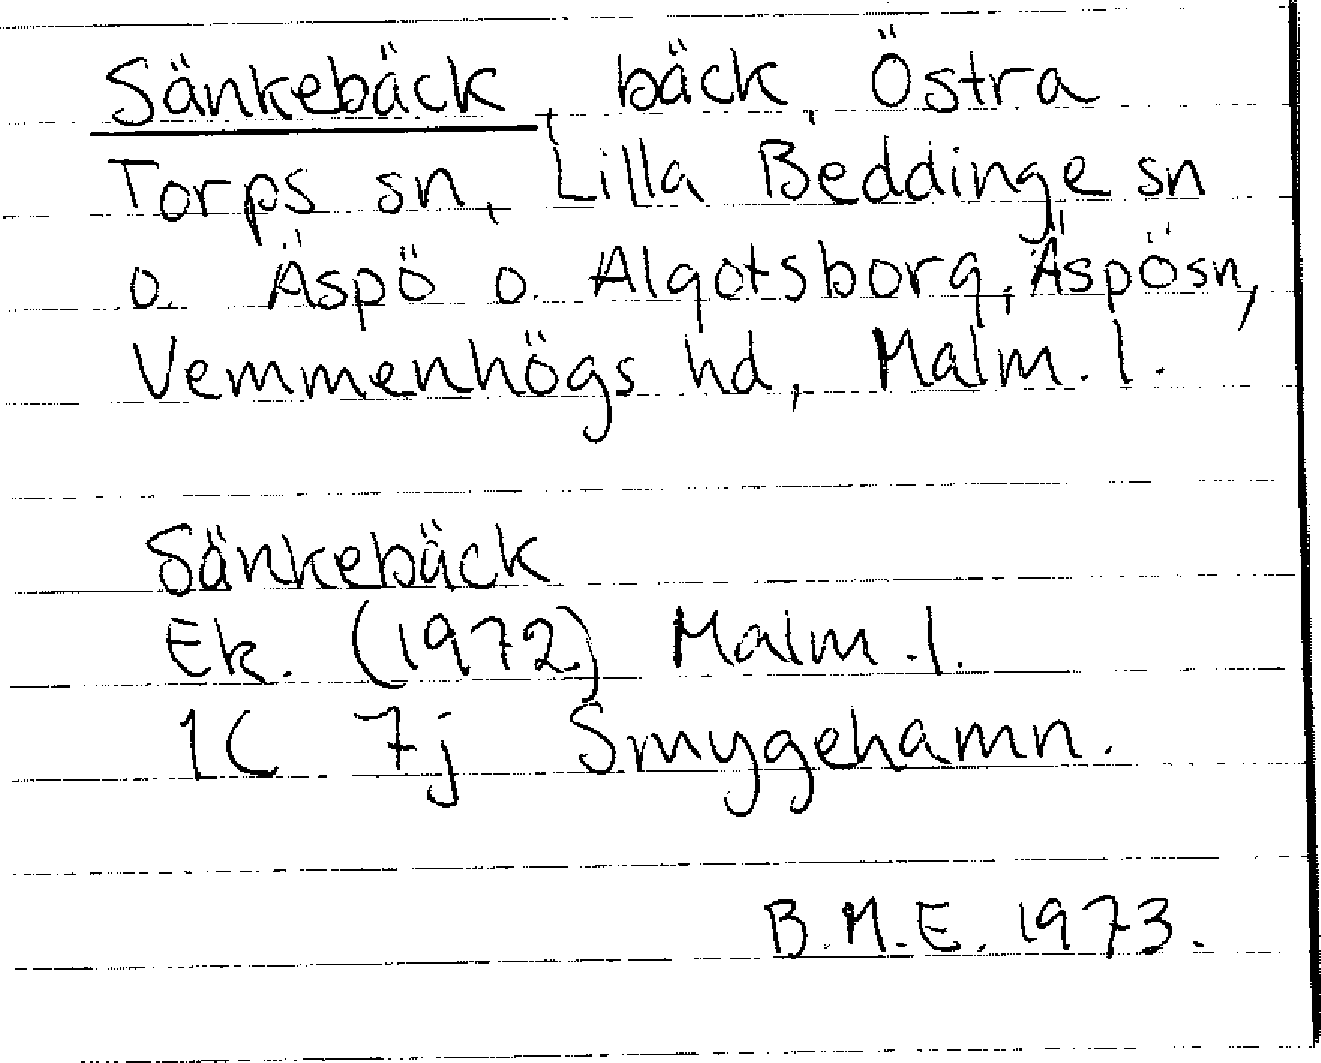 Sänkebäck, bäck, Östra
Torps sn, Lilla Beddinge sn
o. Äspö o. Algotsborg, Äspö sn,
Vemmenhögs hd, Malm. l.
Sänkebäck
Ek. (1972) Malm. l.
1C 7j Smygehamn.
B.M.E. 1973.